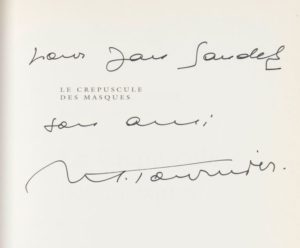 Pour Jan Saudek
LE CREPUSCULE
DES MASQUES
son ami
M. Tournier.